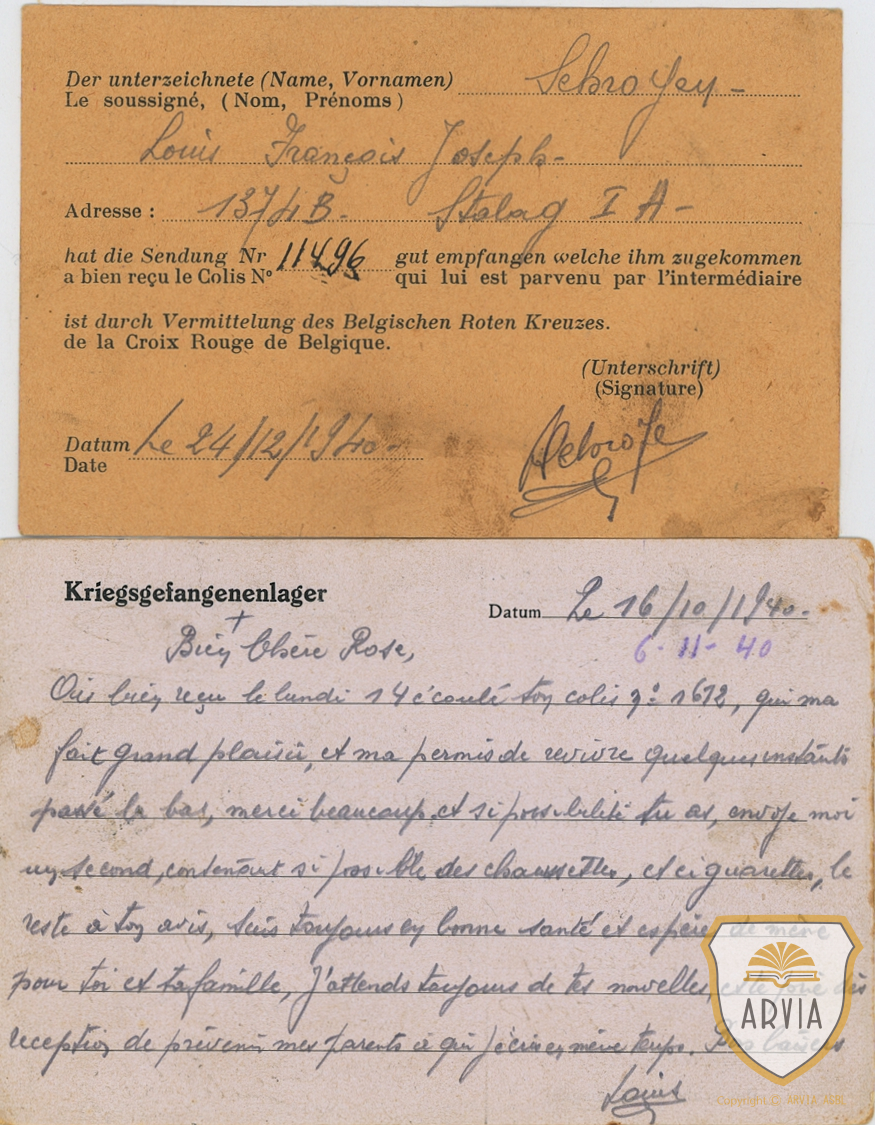 Der unterzeichnete (Name, Vornamen) Schroyen -
Le soussigné, (Nom, Prénoms)
Louis François Joseph -
Adresse : 1374B - Stalag I A -
hat die Sendung Nr 11496 gut empfangen welche ihm zugekommen
a bien reçu le Colis N° qui lui est parvenu par l'intermédiaire
ist durch Vermittelung des Belgischen Roten Kreuzes.
de la Croix Rouge de Belgique.
(Unterschrift)
(Signature)
Datum Le 24/12/1940 -
Date
Kriegsgefangenenlager
Datum Le 16/10/1940 -
6-11-40
Bien Chère Rose,
Ais bien reçu le lundi 14 écoulé ton colis n° 1672, qui ma
fait grand plaisir, et ma permis de revivre quelques instants
passé la bas, merci beaucoup et si possibilité tu as, envoye moi
un second, contenant si possible des chaussettes, et ciguarettes, le
reste à ton avis, suis toujours en bonne santé et espère de même
pour toi et ta famille, J'attends toujours de tes nouvelles, et te prie dès
reception de prévenir mes parents à qui j'écris en même temps. baisers
Louis
ARVIA
Copyright © ARVIA ASBL